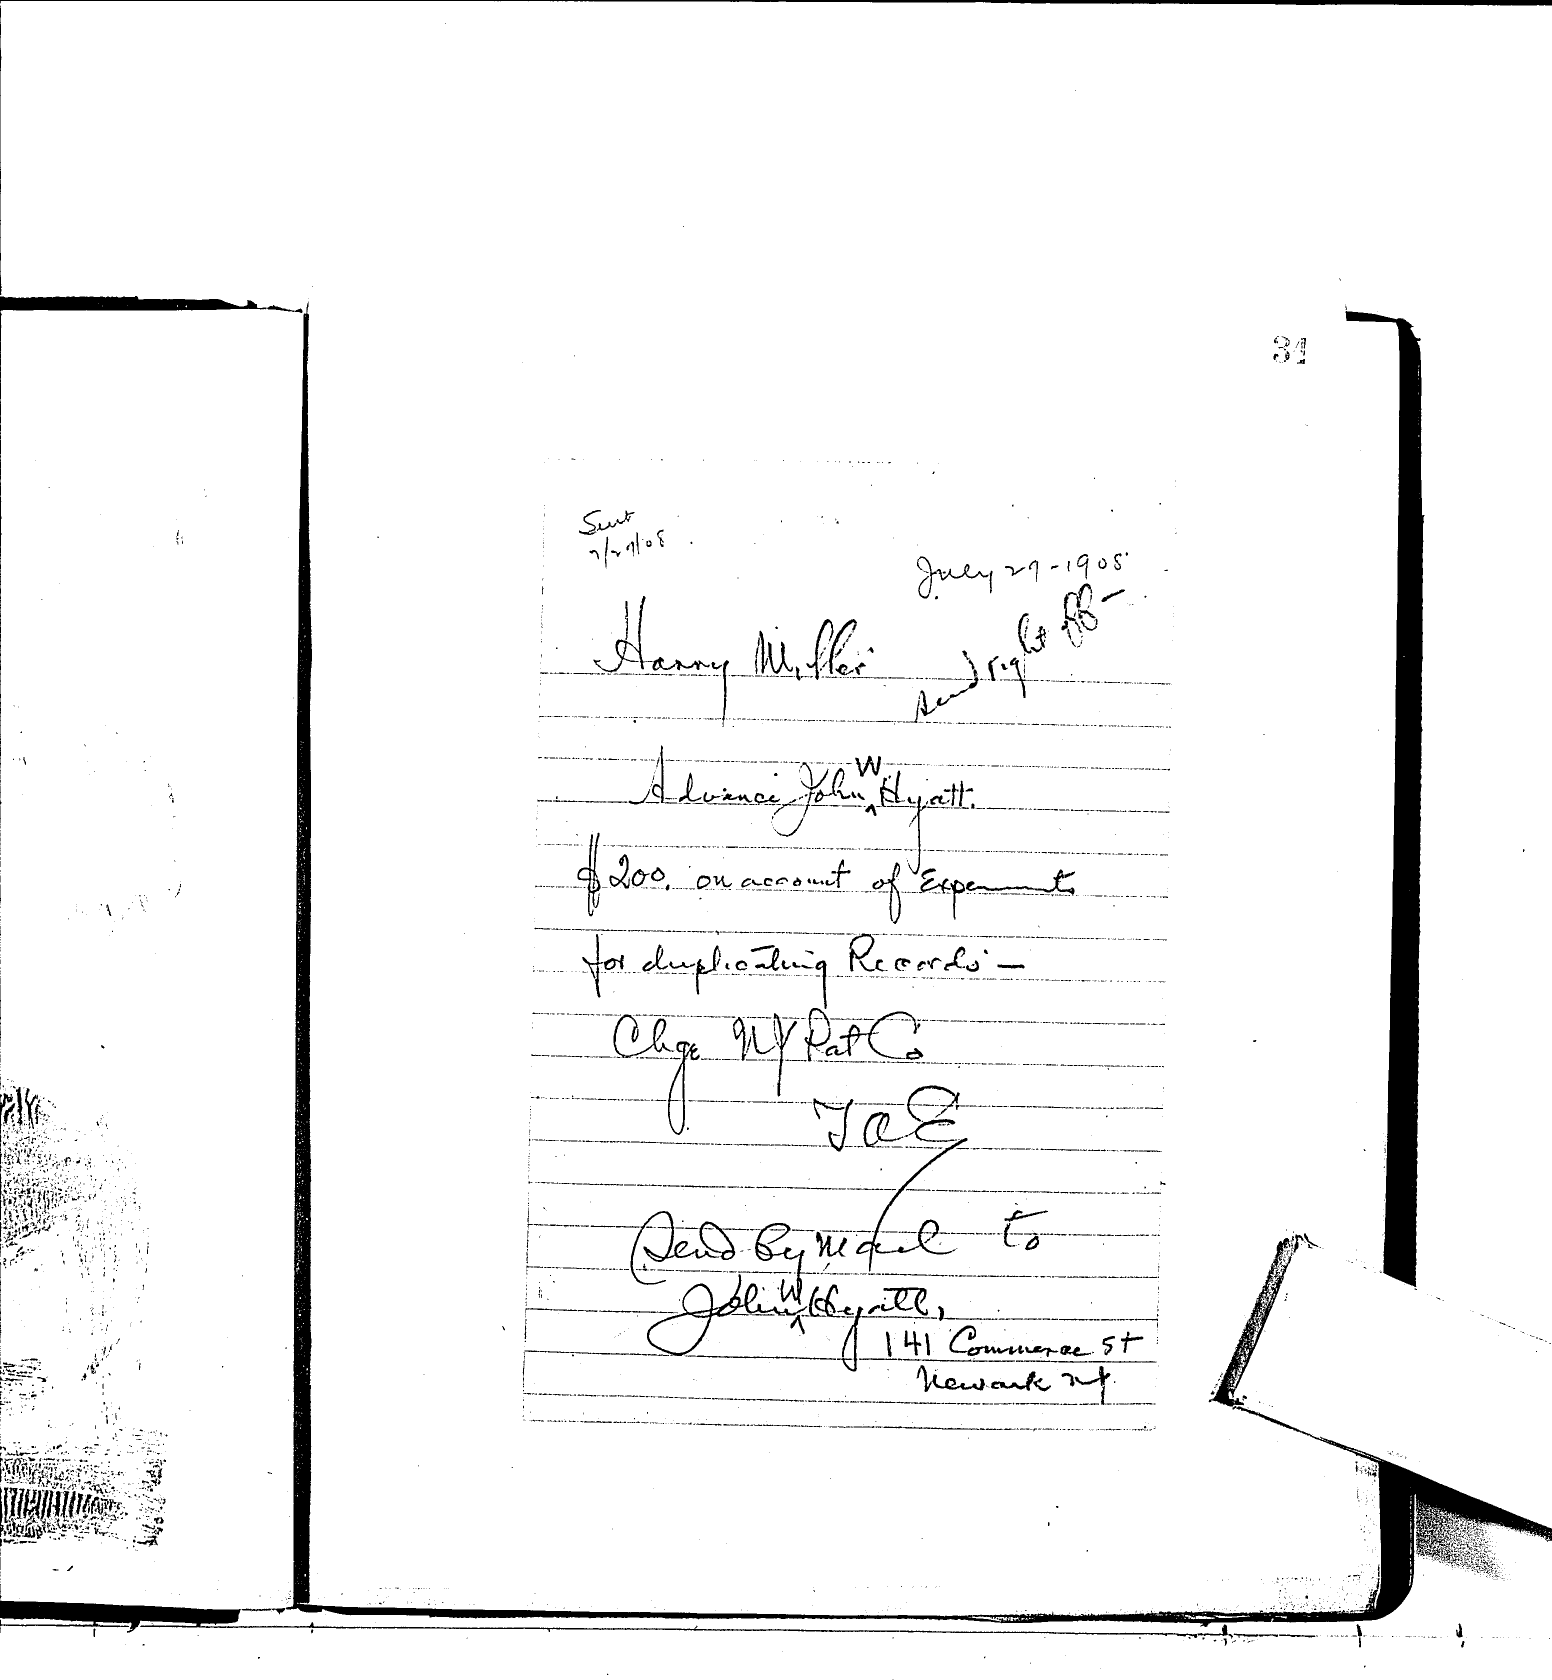 31
Sent
7/27/08
July 27-1908
Harry Miller
Send right off —
Advance John W Hyatt.
$200. on account of Experiments
for duplicating Records —
Chge NY Pat Co
TAE
Send by Mail to
John W Hyatt,
141 Commerce St
Newark NJ